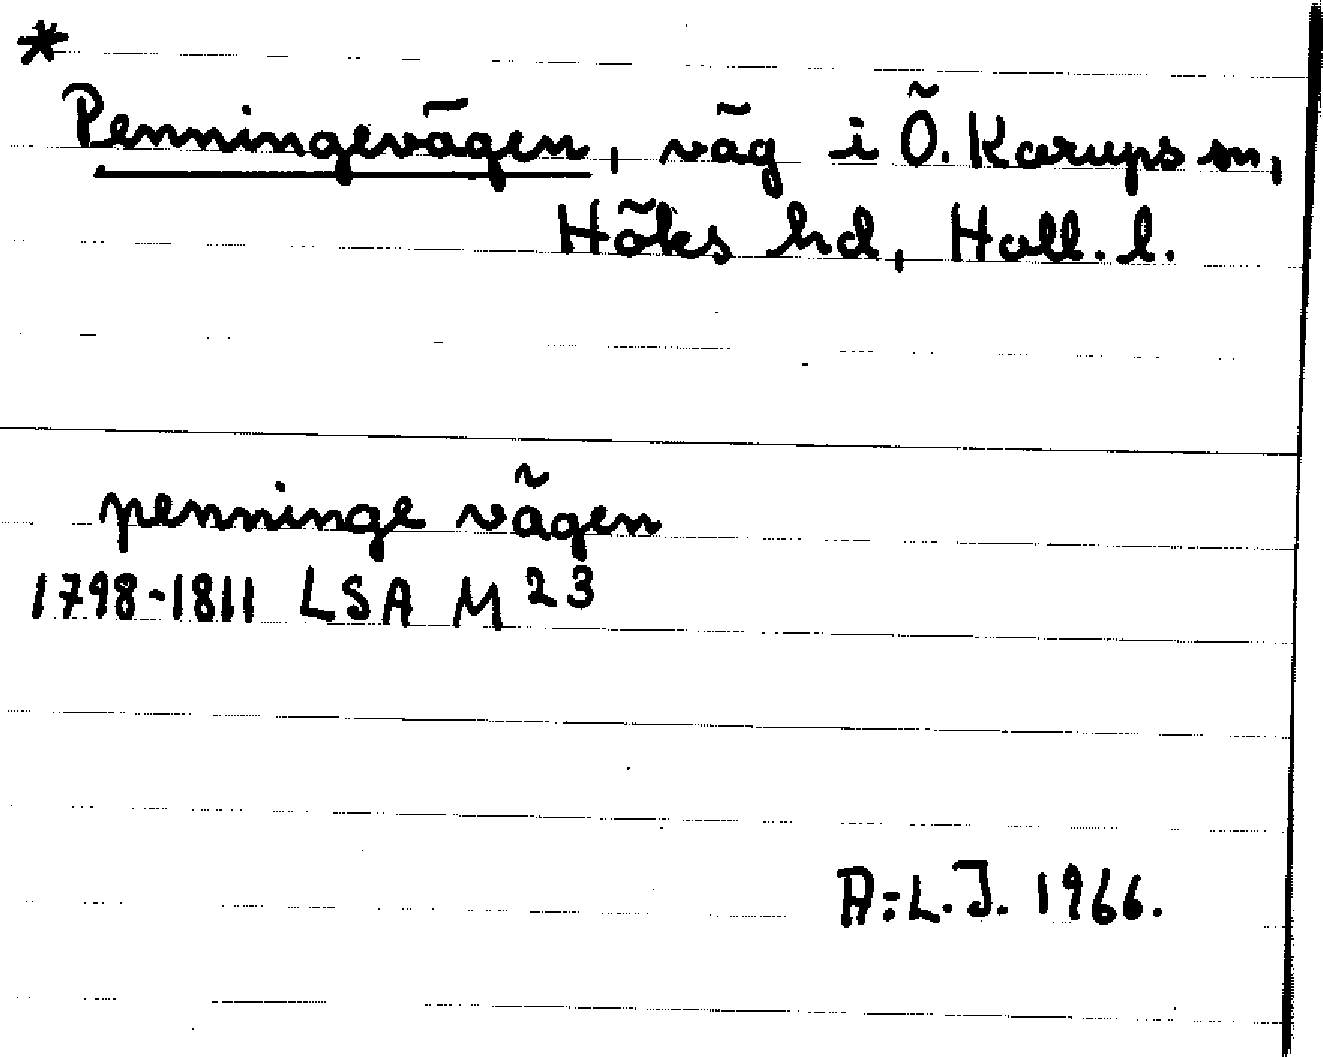 *
Penningevägen, väg i Ö. Karups sn,
Höks hd, Hall. l.
penninge vägen
1798-1811 LSA M23
A:L.J. 1966.